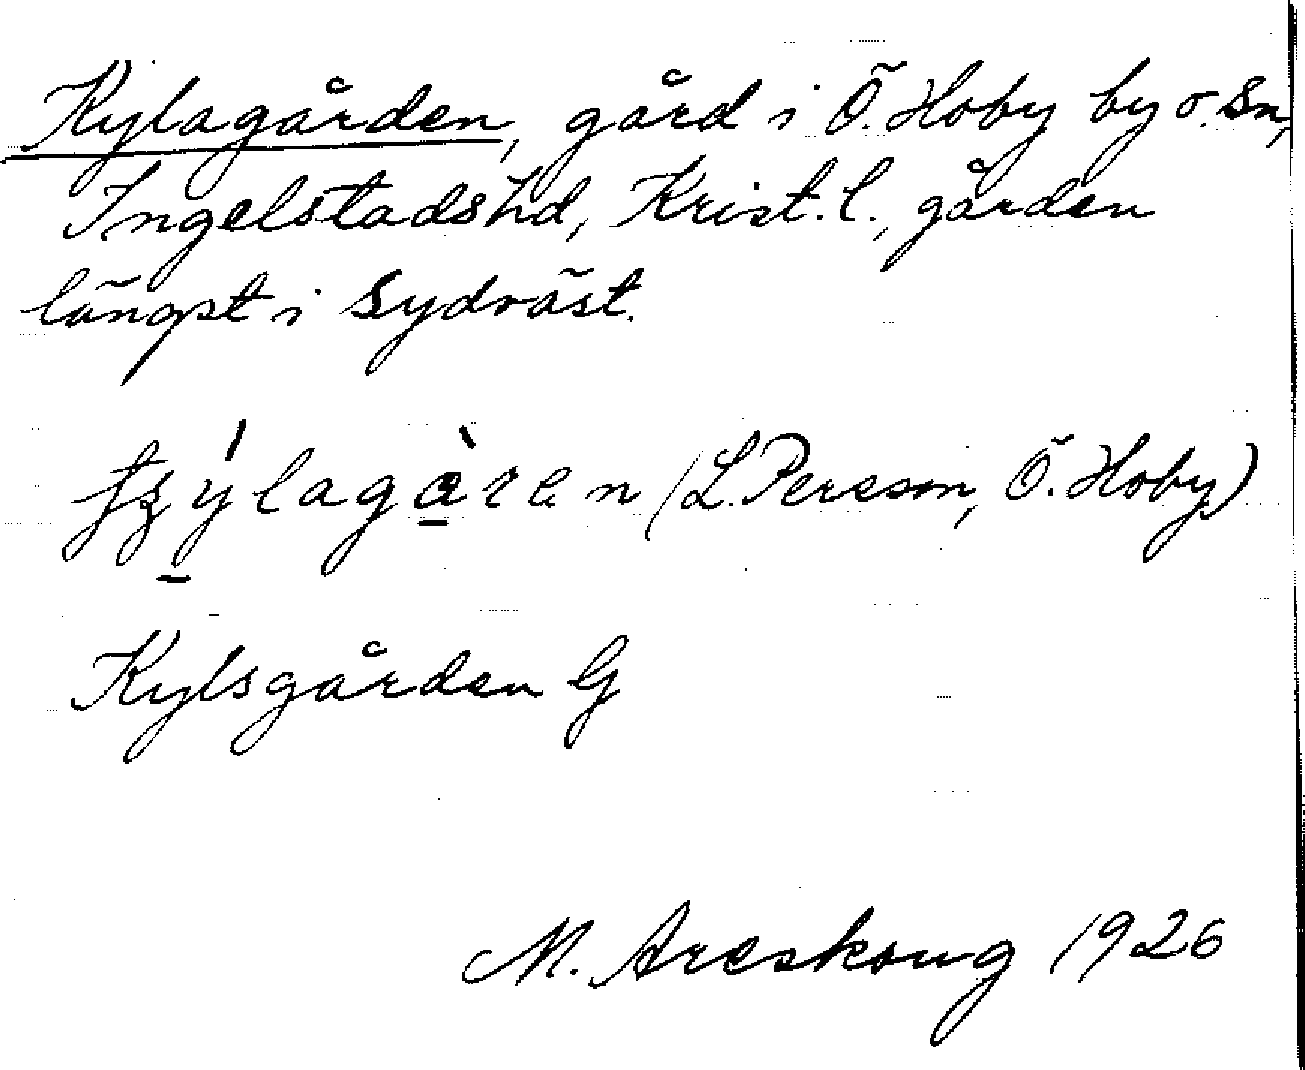 Kylagården, gård i Ö. Hoby by o. sn,
Ingelstads hd, Krist. l., gården
längst i sydväst.
(L. Persson, Ö. Hoby)
Kylsgården G
M. Areskoug 1926